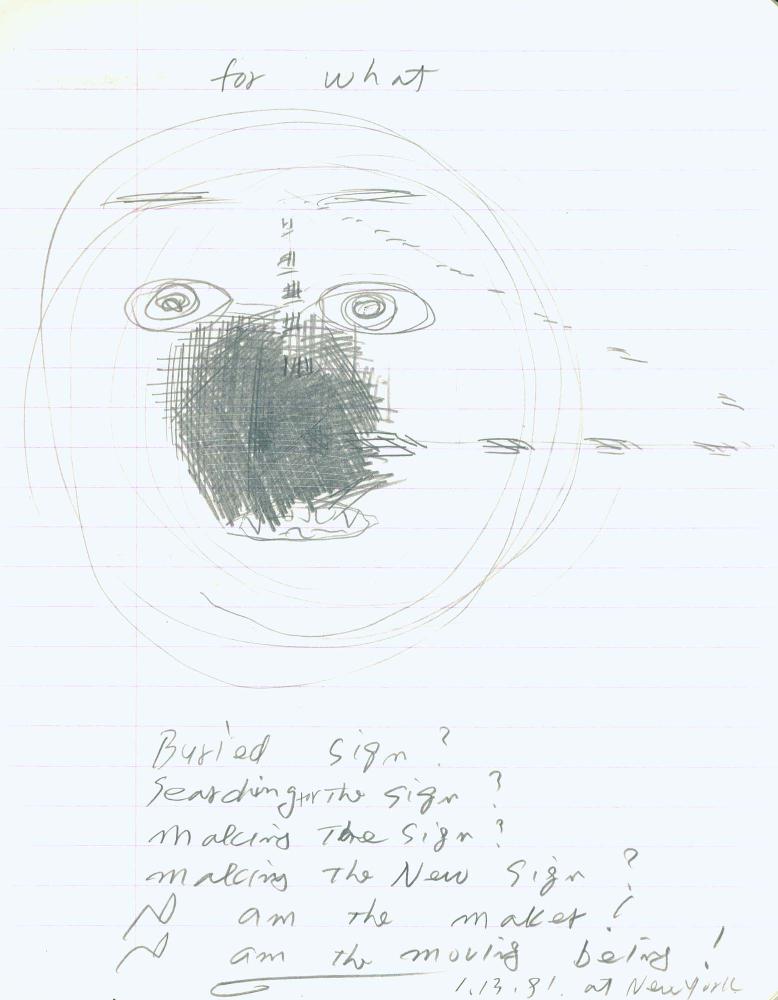 for what
Buried sign?
Searching for the sign?
making The Sign?
making The New Sign?
I am the maker!
I am the moving being!
1.13.81. at New York